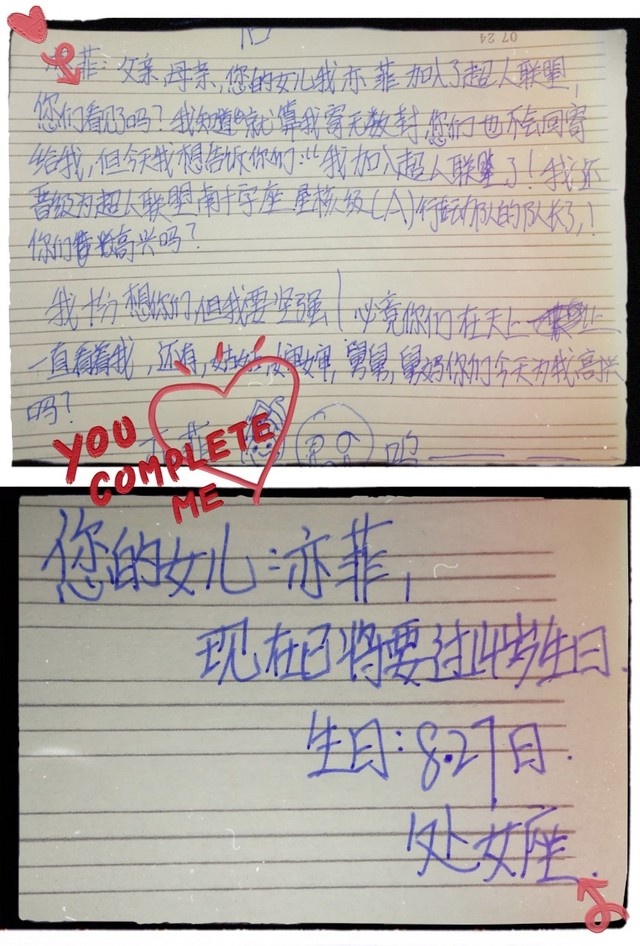 07 24
亦菲：父亲,母亲,您的女儿我亦菲加入了超人联盟,
您们看见了吗？我知道就算我寄无数封,您们也不会回寄
给我,但今天我想告诉你们："我加入超人联盟了！我还
晋级为超人联盟南十字座星核级(A)行动队的队长了,！
你们高兴吗？
我十分想你们,但我要坚强！必竟你们在天上
一直看着我,还有,姑姑,婶婶,舅舅,舅妈你们今天为我高兴
吗？
亦菲
YOU
COMPLETE
ME
您的女儿：亦菲,
现在已将要过14岁生日.
生日：8.27日.
处女座.